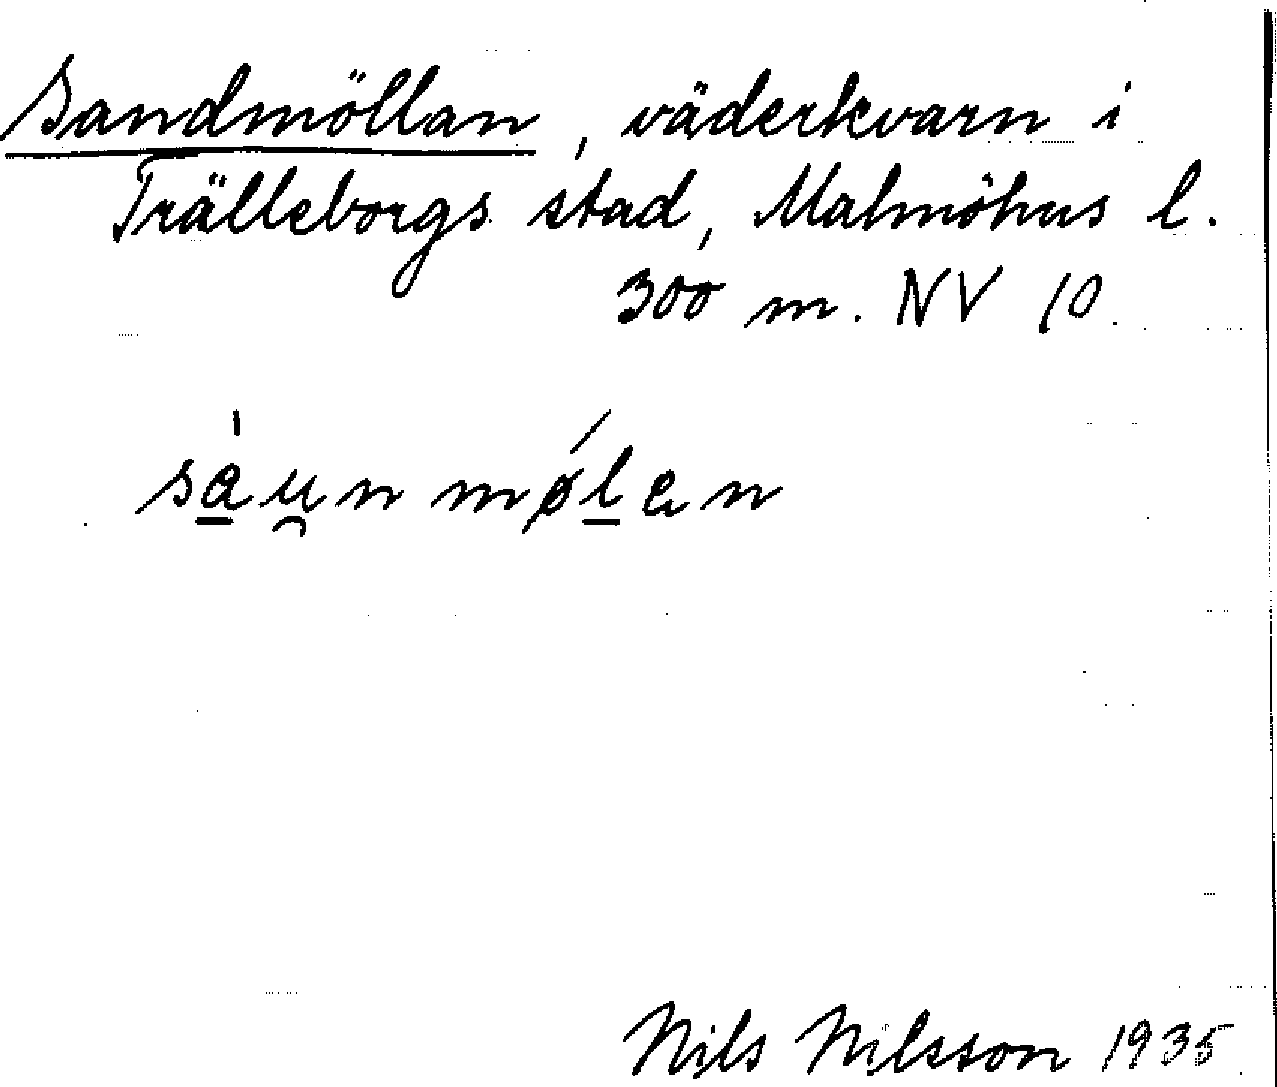 Sandmöllan, väderkvarn i
Trälleborgs stad, Malmöhus l.
300 m. NV 10.
sa̱u̯nmøḻen
Nils Nilsson 1935